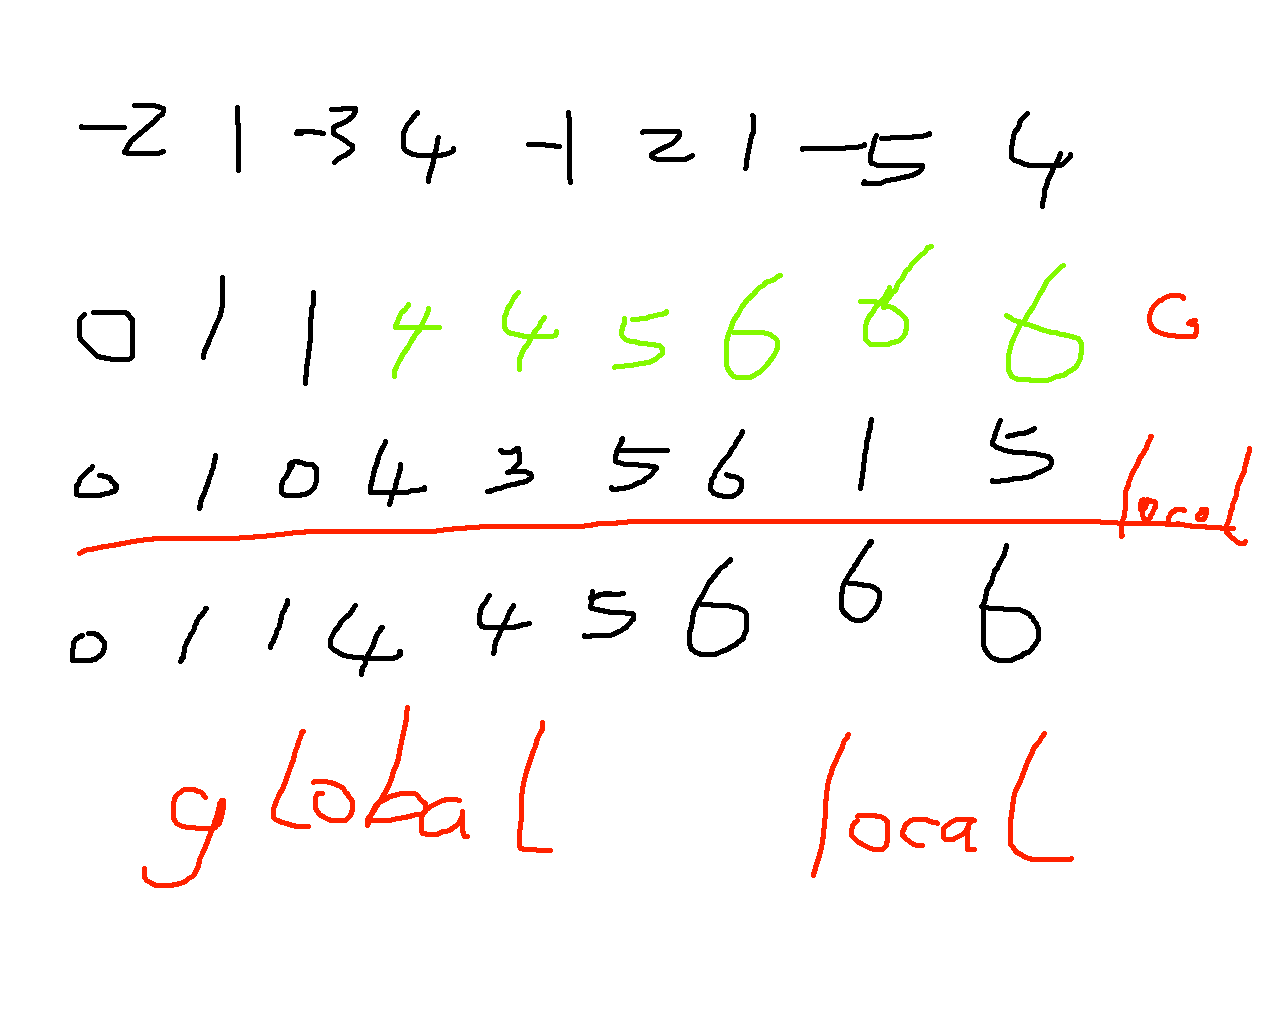 -2 1 -3 4 -1 2 1 -5 4
0 1 1 4 4 5 6 6 6 G
0 1 0 4 3 5 6 1 5 local
0 1 1 4 4 5 6 6 6
global local